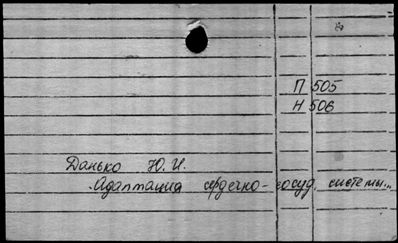 П 505
Н 506
Данько Ю.И.
Адаптация сердечно-сосуд. системы...